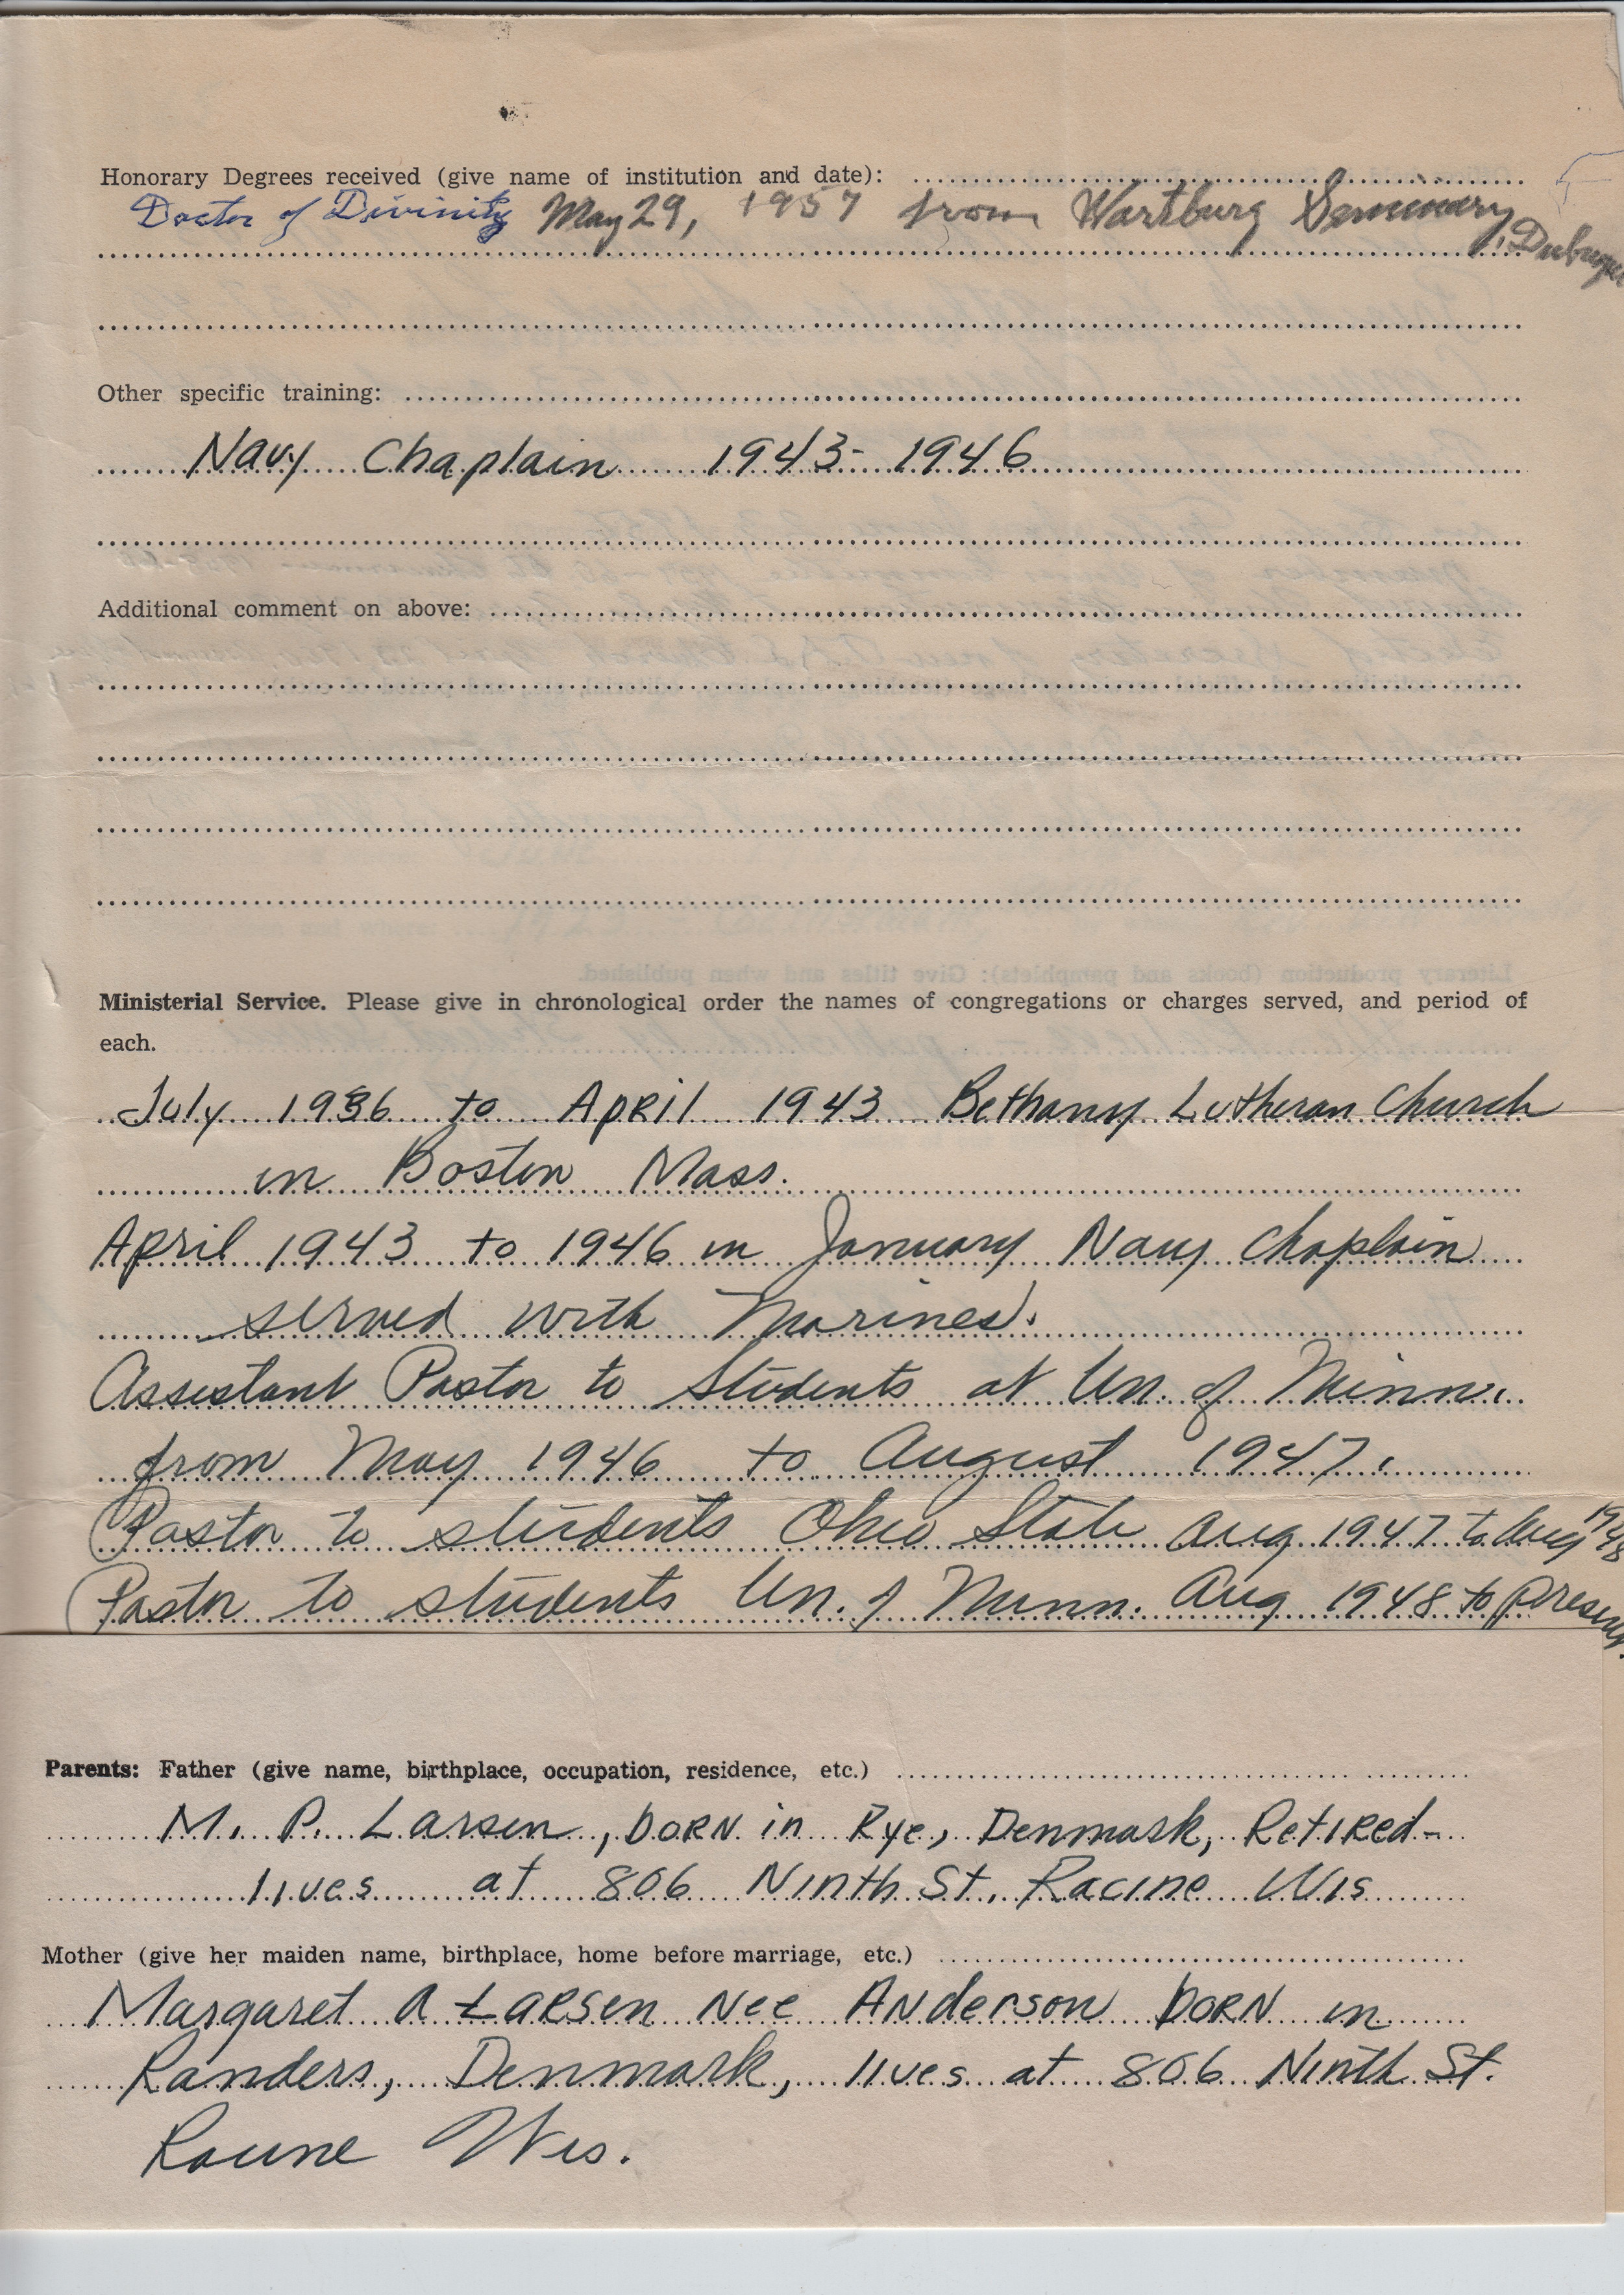 Honorary Degrees received (give name of institution and date):
Doctor of Divinity May 29, 1957 from Wartburg Seminary, Dubuque
Other specific training:
Navy Chaplain 1943-1946
Additional comment on above:
Ministerial Service. Please give in chronological order the names of congregations or charges served, and period of
each.
July 1936 to April 1943 Bethany Lutheran Church
in Boston Mass.
April 1943 to 1946 in January Navy Chaplain
served with Marines.
Assistant Pastor to Students at Un. of Minn.
from May 1946 to August 1947.
Pastor to students Ohio State Aug 1947 to Aug 1948
Pastor to students Un. of Minn. Aug 1948 to present.
Parents: Father (give name, birthplace, occupation, residence, etc.)
M. P. Larsen, born in Rye, Denmark, Retired-
lives at 806 Ninth St. Racine Wis
Mother (give her maiden name, birthplace, home before marriage, etc.)
Margaret A Larsen Nee Anderson born in
Randers, Denmark, lives at 806 Ninth St.
Racine Wis.